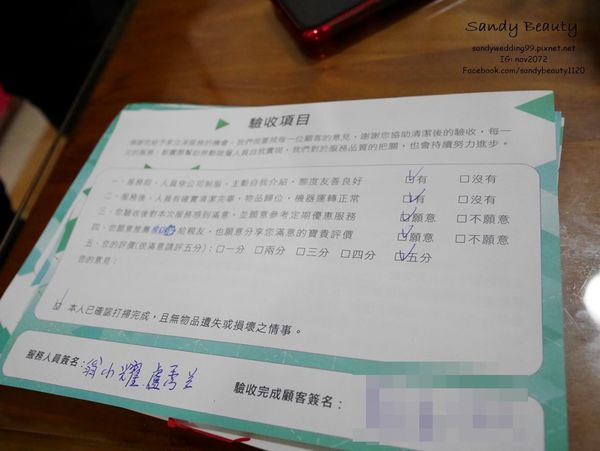 Sandy Beauty
sandywedding99.pixnet.net
IG: nov2072
Facebook.com/sandybeauty1120
驗收項目
感謝您給予家立淨服務的機會，我們很重視每一位顧客的意見，謝謝您協助清潔後的驗收，每一
次的服務，都實際幫助弱勢就業人員自我實現，我們對於服務品質的把關，也會持續努力進步。
一、服務前，人員穿公司制服，主動自我介紹，態度友善良好 ☑有 □沒有
二、服務後，人員有確實清潔完畢，物品歸位，機器運轉正常 ☑有 □沒有
三、您驗收後對本次服務感到滿意，並願意參考定期優惠服務 ☑願意 □不願意
四、您願意推薦 給親友，也願意分享您滿意的寶貴評價 ☑願意 □不願意
五、您的評價(很滿意請評五分)：□一分 □兩分 □三分 □四分 ☑五分
您的意見：
☑ 本人已確認打掃完成，且無物品遺失或損壞之情事。
服務人員簽名：翁小耀 盧秀兰
驗收完成顧客簽名：